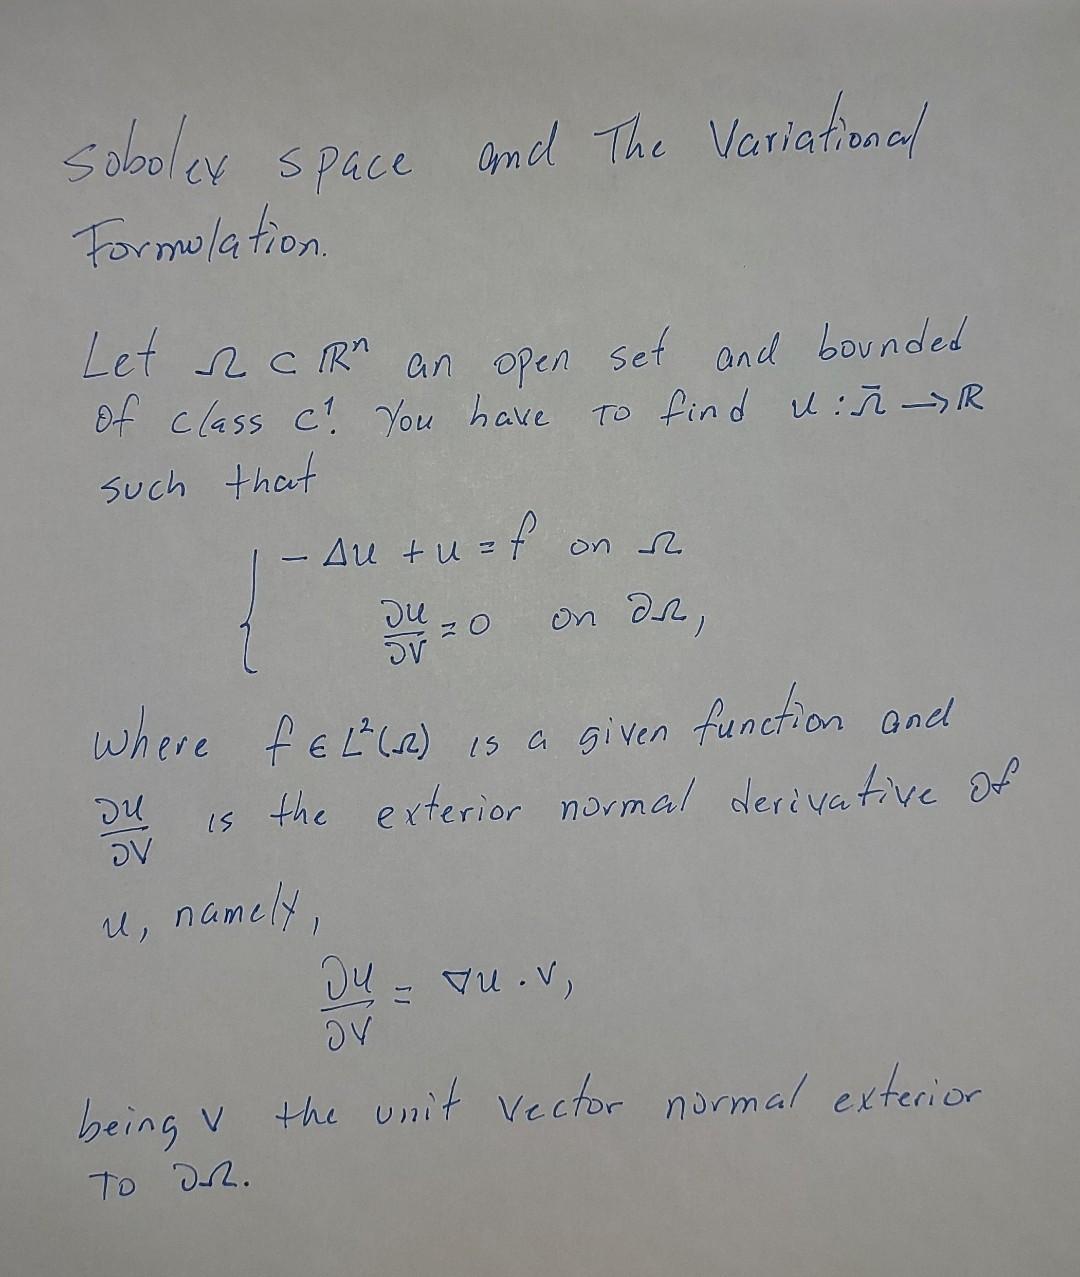 Sobolev space and The Variational
Formulation.
Let Ω ⊂ ℝⁿ an open set and bounded
of class C¹. You have to find u : Ω̄ → ℝ
such that
{ -Δu + u = f on Ω
∂u/∂ν = 0 on ∂Ω,
where f ∈ L²(Ω) is a given function and
∂u/∂ν is the exterior normal derivative of
u, namely,
∂u/∂ν = ∇u · ν,
being ν the unit vector normal exterior
to ∂Ω.